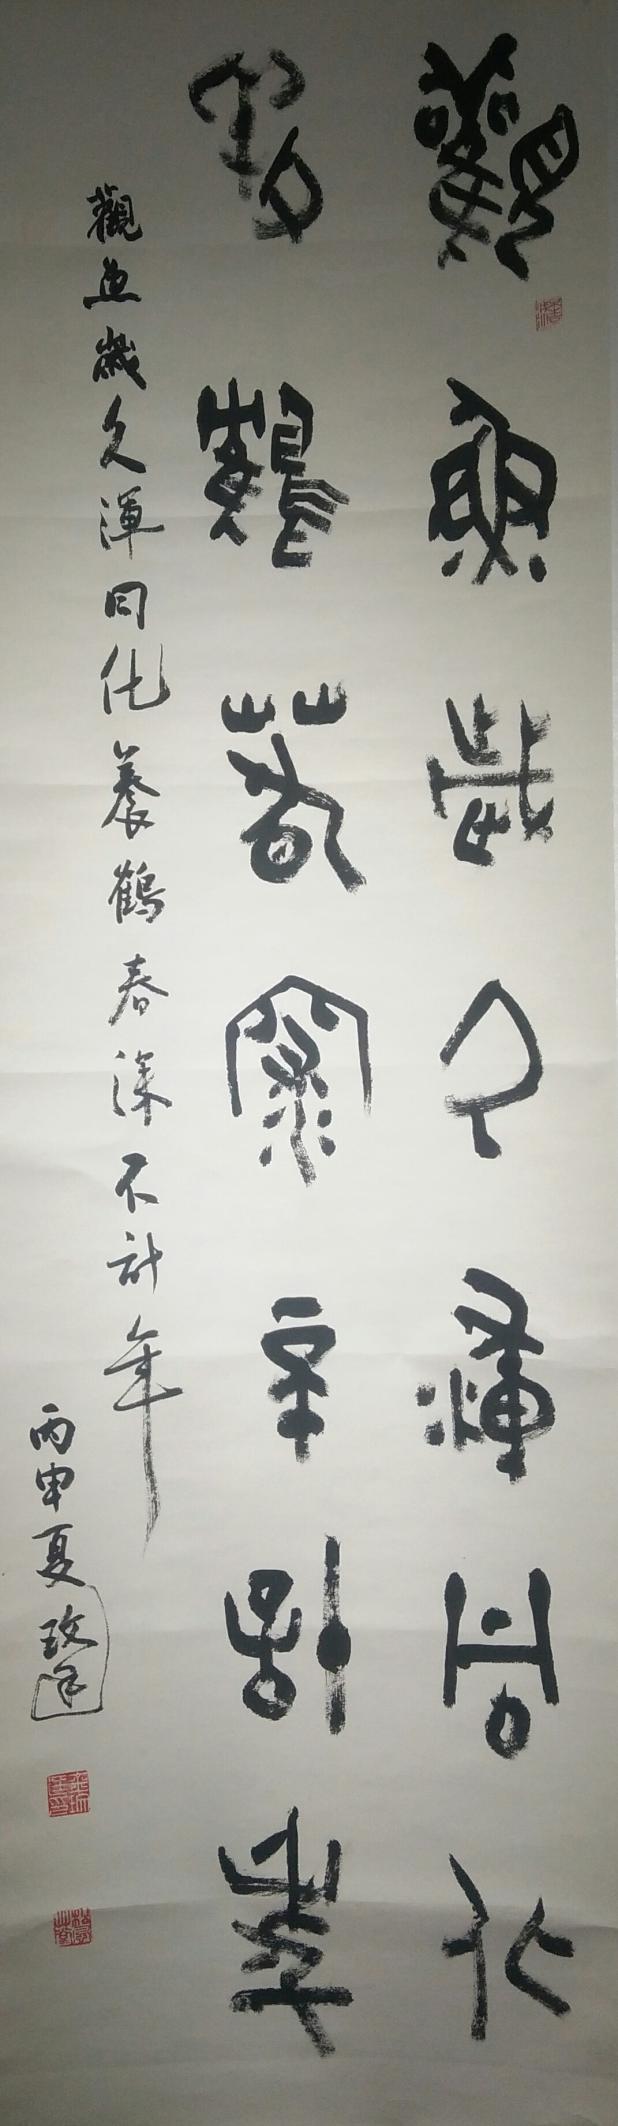 觀魚歲久渾同化
養鶴春深不計年
觀魚歲久渾同化養鶴春深不計年
丙申夏玫